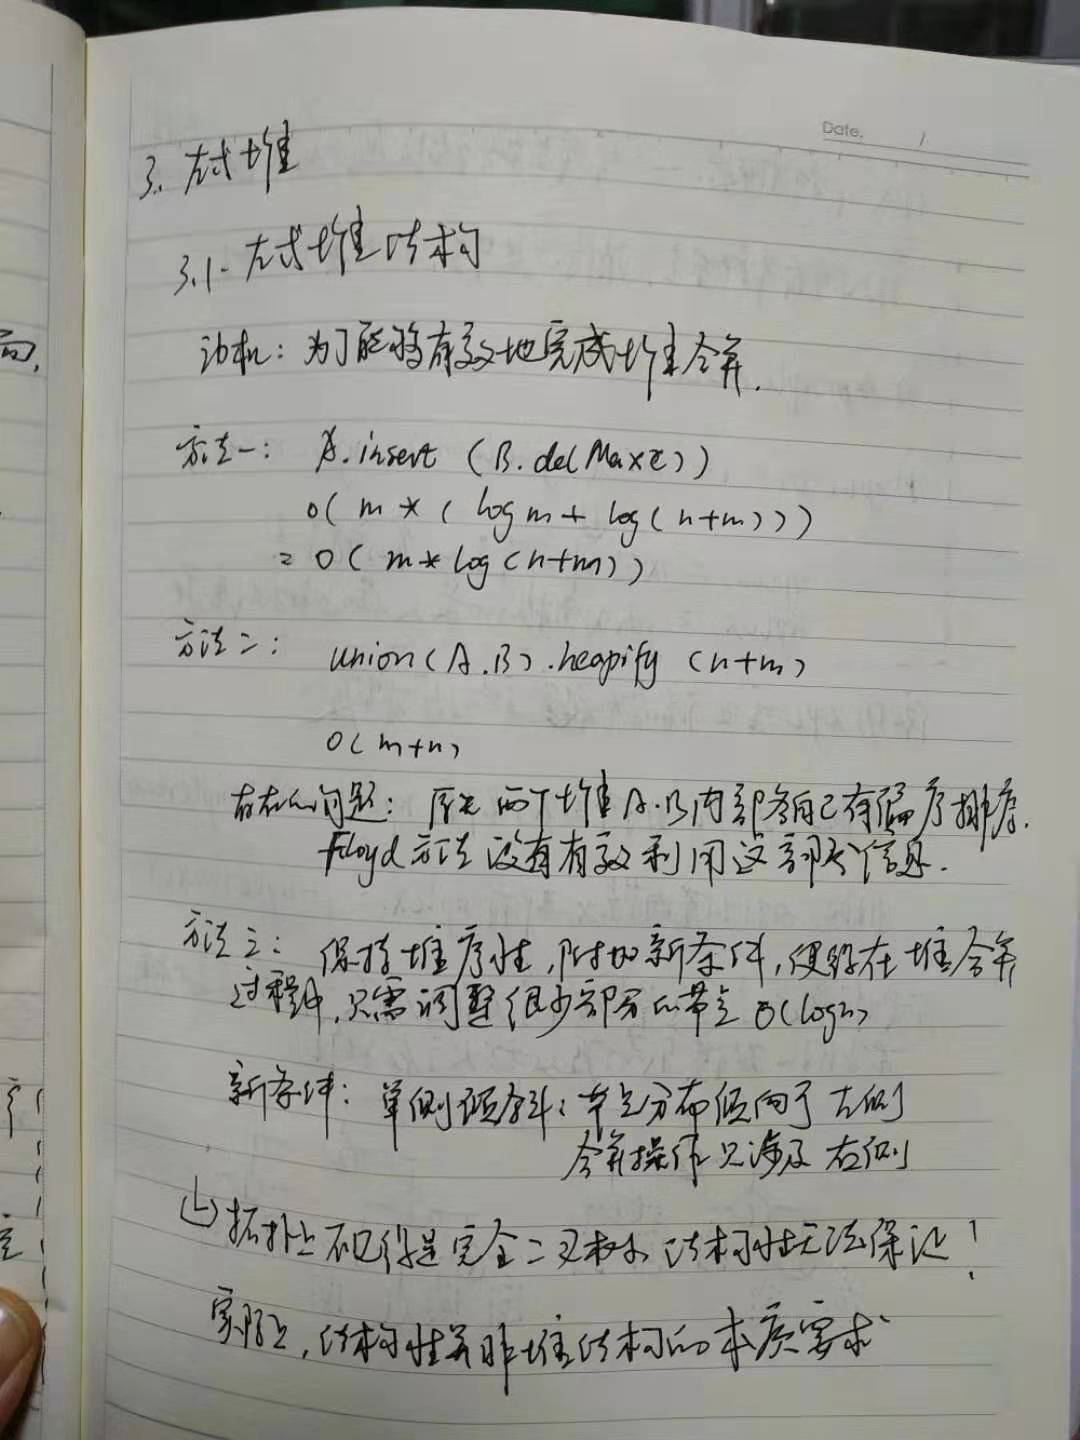 Date. /
3. 左式堆
3.1. 左式堆结构
动机: 为了能够有效地完成堆合并.
方法一: A.insert (B.delMax())
O( m * ( log m + log(n+m)))
= O( m * log(n+m))
方法二: union(A.B).heapify (n+m)
O(m+n)
存在的问题: 原先两个堆A.B内部各自已有偏序排序.
Floyd方法没有有效利用这部分信息.
方法三: 保持堆序性,附加新条件,使得在堆合并
过程中,只需调整很少部分的节点 O(logn)
新条件: 单侧倾斜: 节点分布倾向于左侧
合并操作只涉及右侧
拓扑上不见得是完全二叉树, 结构性无法保证!
实际上,结构性并非堆结构的本质要求
面,